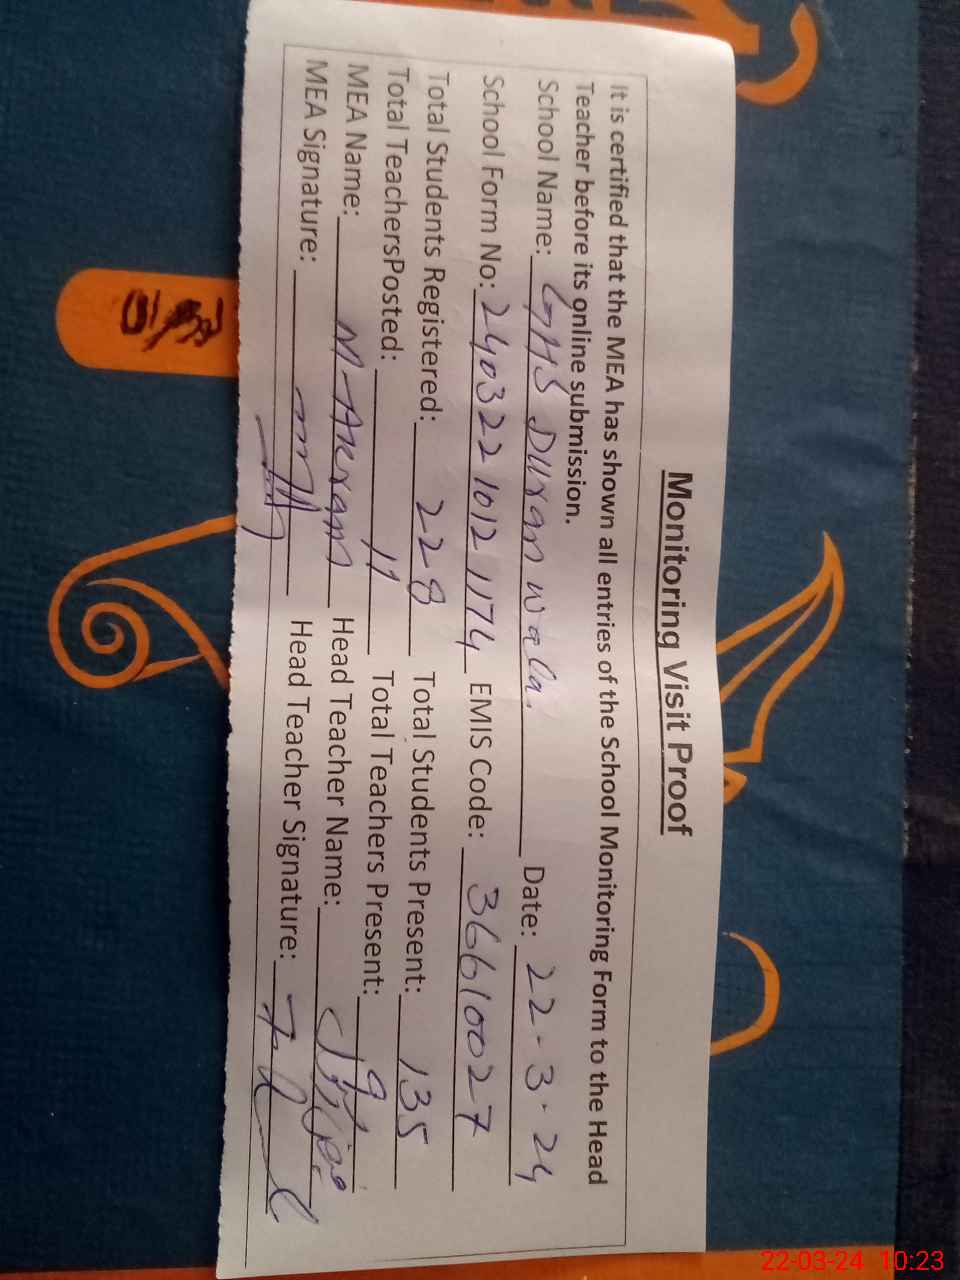 Monitoring Visit Proof
It is certified that the MEA has shown all entries of the School Monitoring Form to the Head
Teacher before its online submission.
School Name: GHS Duran wala. Date: 22-3-24
School Form No: 240322 1012 1174 EMIS Code: 36610027
Total Students Registered: 228 Total Students Present: 135
Total TeachersPosted: 11 Total Teachers Present: 9
MEA Name: M-Akram Head Teacher Name:
MEA Signature: Head Teacher Signature:
22-03-24 10:23